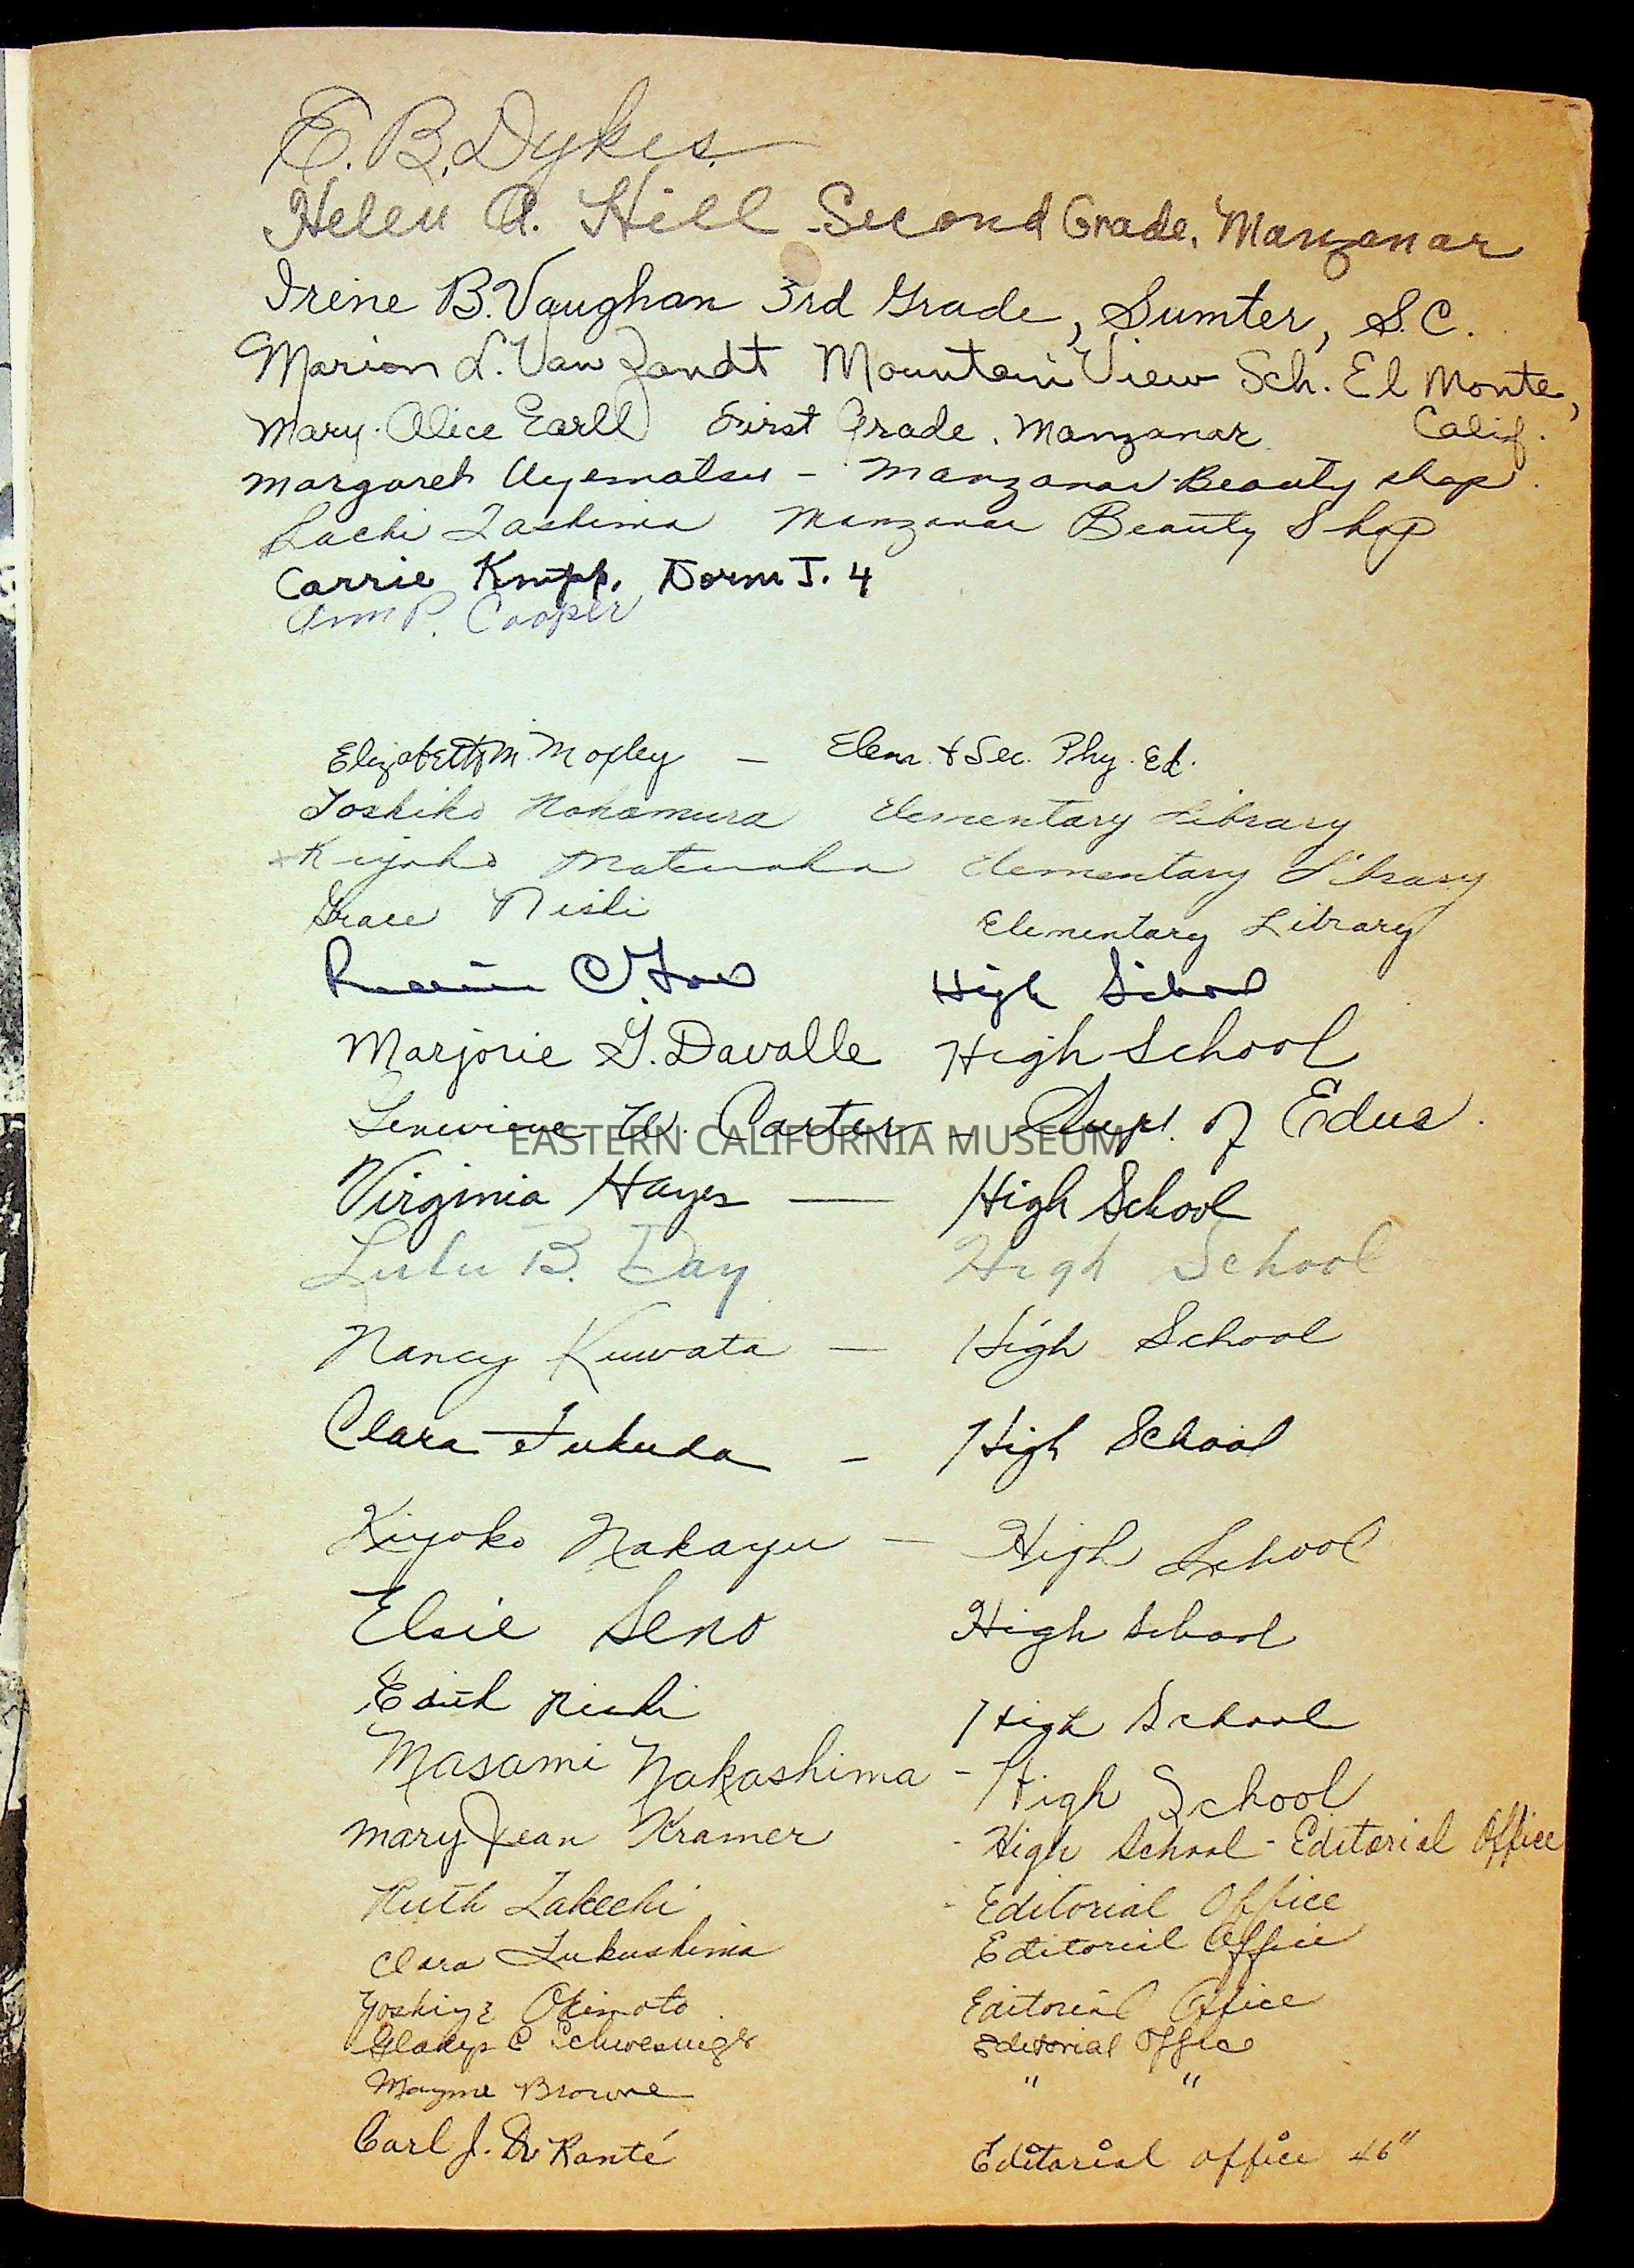 E. B. Dykes.
Helen A. Hill Second Grade, Manzanar
Irene B. Vaughan 3rd Grade, Sumter, S.C.
Marion L. Van Zandt Mountain View Sch. El Monte,
Mary Alice Earll First Grade. Manzanar Calif.
Margaret Uyematsu - Manzanar Beauty shop.
Sachi Tashima Manzanar Beauty Shop
Carrie Dorm J. 4
Ann P. Cooper
Elizabeth M. Moxley - Elem. & Sec. Phy. Ed.
Toshiko Nakamura Elementary Library
Kiyoko Elementary Library
Grace Nishi Elementary Library
High School
Marjorie G. Davalle High School
Genevieve W. Carter - Supt. of Educ.
EASTERN CALIFORNIA MUSEUM
Virginia Hayes — High School
Lulu B. Day High School
Nancy Kuwata — High School
Clara Fukuda - High School
Kiyoko Nakayu - High School
Elsie Seno High School
Edith Nishi High School
Masami Nakashima - High School
Mary Jean Kramer - High School - Editorial Office
Ruth Takechi - Editorial Office
Clara Fukushima Editorial Office
Yoshiye Okimoto Editorial Office
Gladys C Editorial Office
Mayme Browne " "
Carl J. De Ranté Editorial office 46"